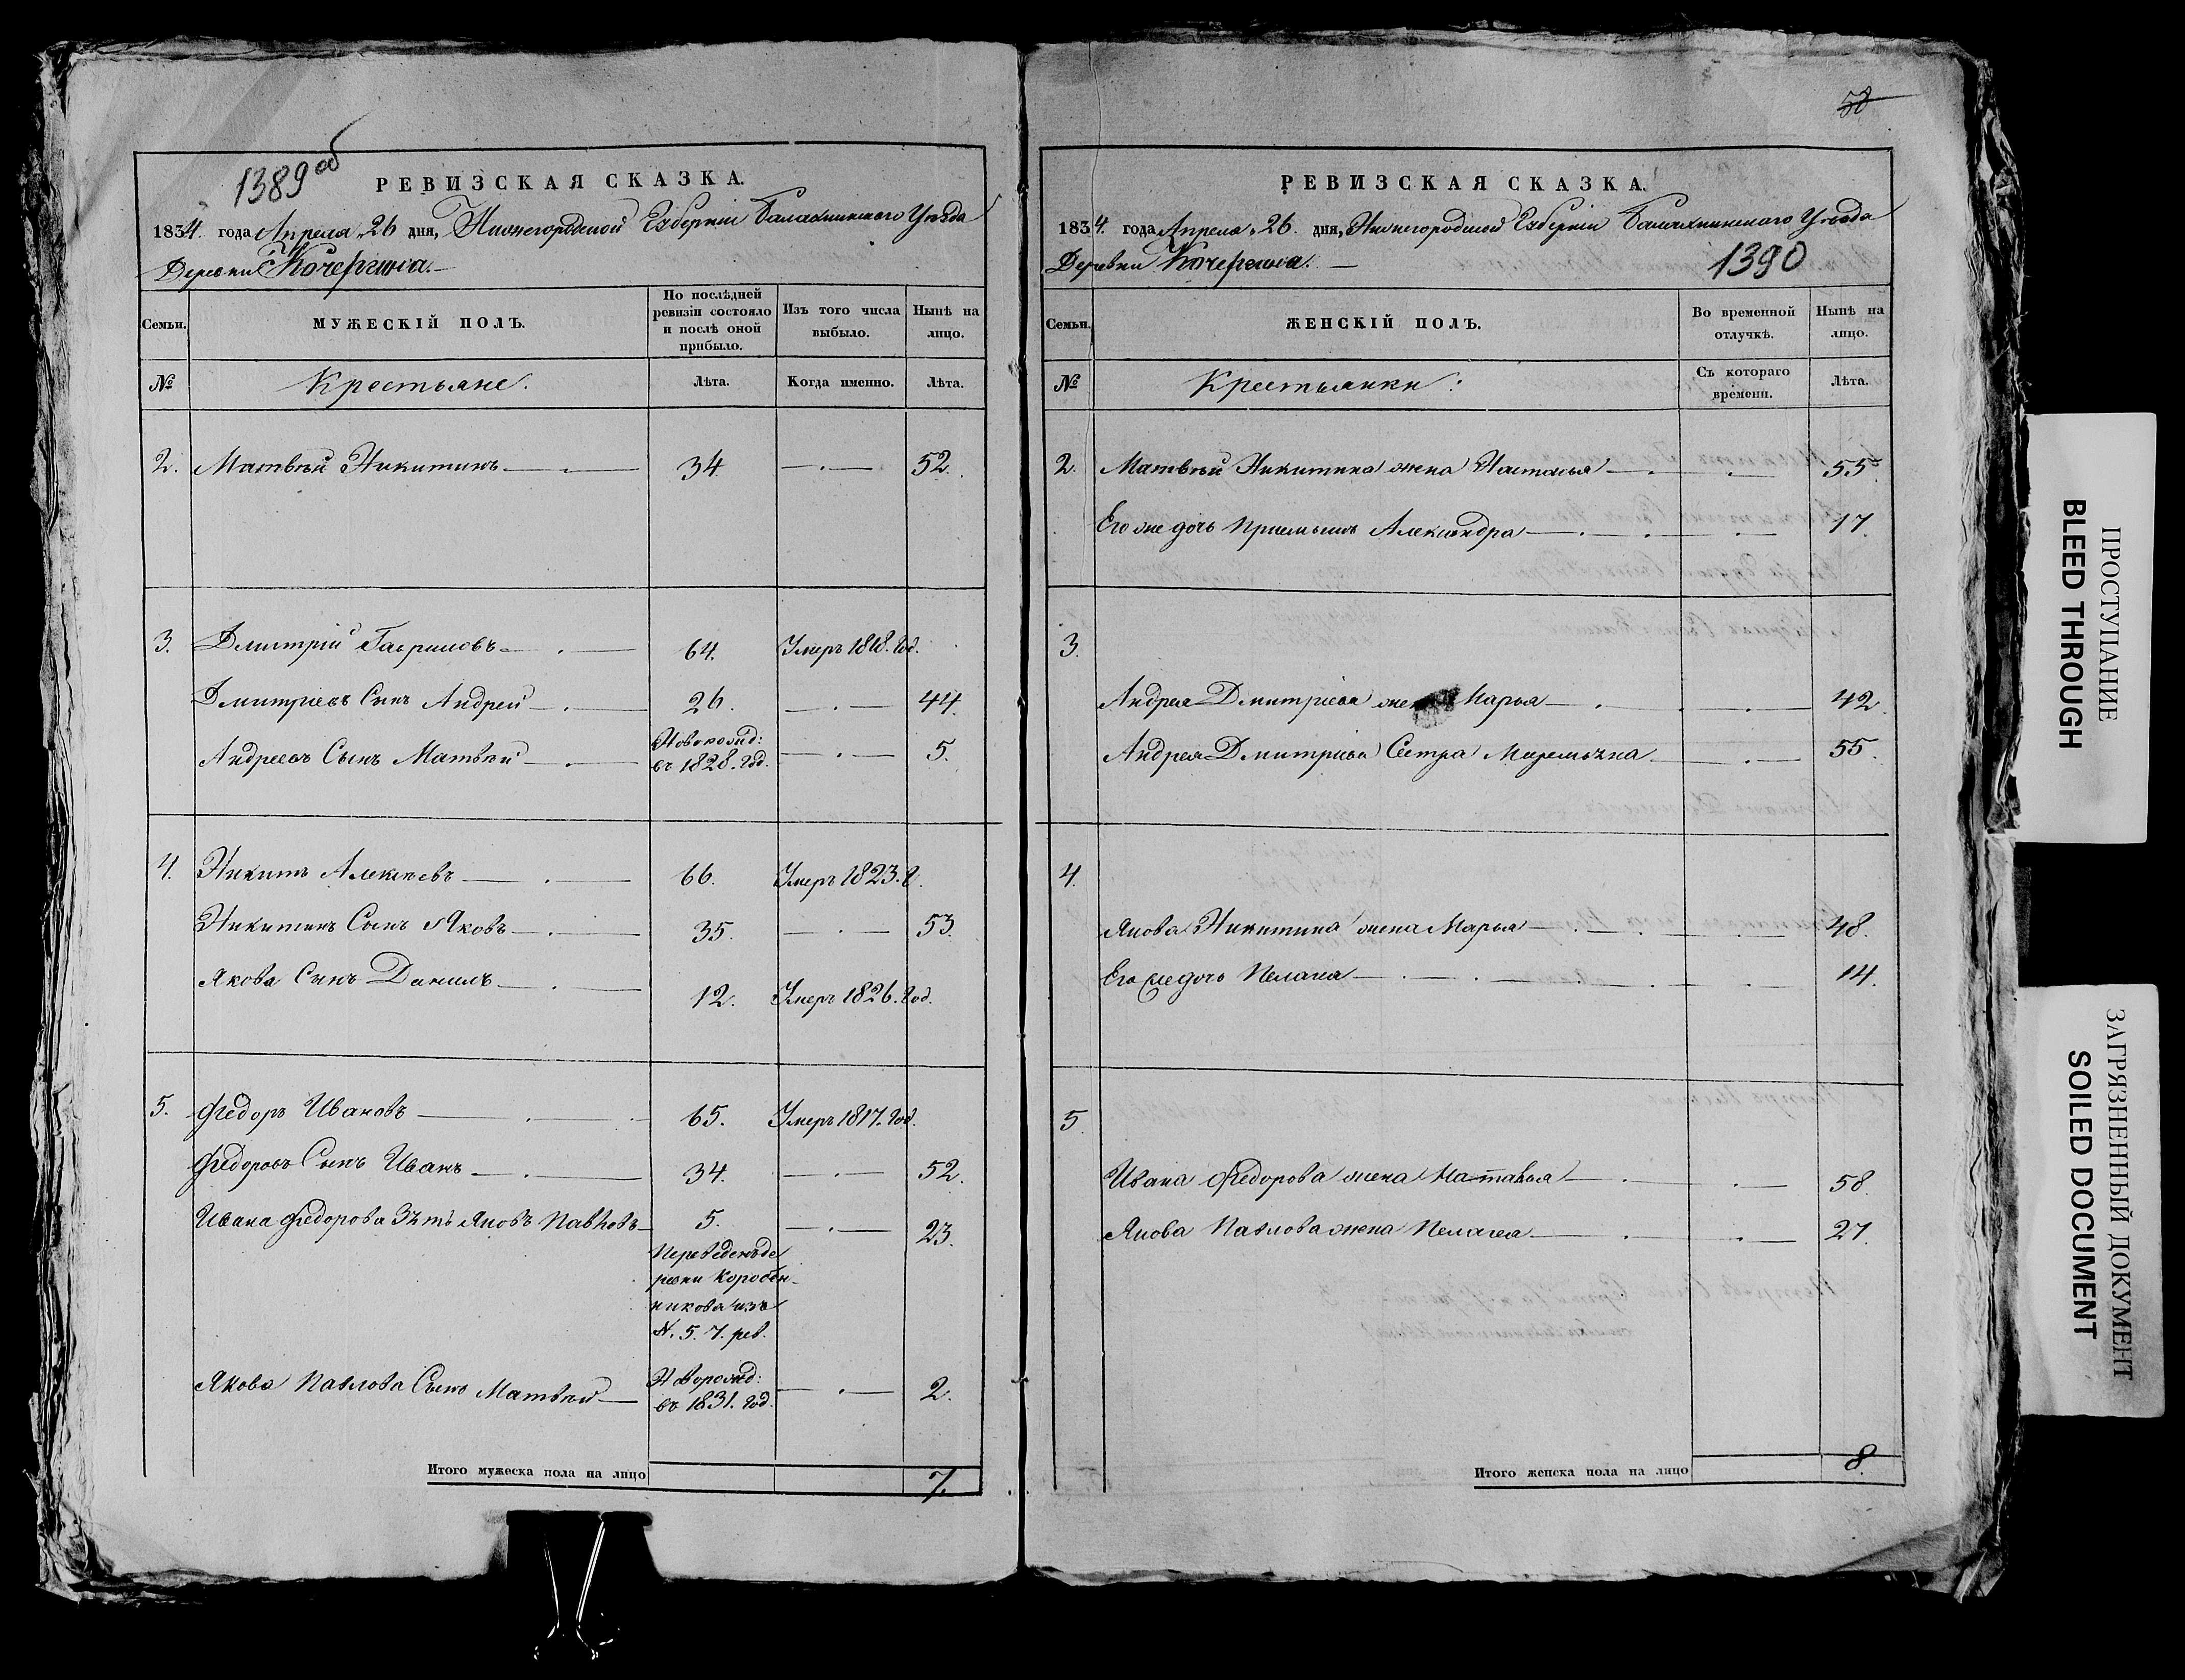 1389 об
РЕВИЗСКАЯ СКАЗКА.
1834. года Апреля 26 дня, Нижегородской Губерніи Балахнинского Уѣзда
Деревни Кочергина.
Семьи. МУЖЕСКІЙ ПОЛЪ. По послѣдней ревизіи состояло и послѣ оной прибыло. Изъ того числа выбыло. Нынѣ на лицо.
№ Крестьяне. Лѣта. Когда именно. Лѣта.
2. Матвѣй Никитинъ 34 52.
3. Дмитрій Гавриловъ 64. Умеръ 1818. год.
Дмитріевъ Сынъ Андрей 26. 44.
Андреевъ Сынъ Матвѣй Новорожд: въ 1828. год. 5.
4. Никита Алексѣевъ 66. Умеръ 1823. г.
Никитинъ Сынъ Яковъ 35. 53.
Якова Сынъ Данилъ 12. Умеръ 1826. год.
5. Федоръ Ивановъ 65. Умеръ 1817. год.
Федоровъ Сынъ Иванъ 34. 52.
Ивана Федорова Зять Яковъ Павловъ 5. 23.
Переведенъ де
ревни Коробей-
никова изъ
N. 5. 7. рев.
Якова Павлова Сынъ Матвѣй Новорожд: въ 1831. год. 2.
Итого мужеска пола на лицо 7.
58
РЕВИЗСКАЯ СКАЗКА.
1834. года Апреля 26. дня, Нижегородской Губерніи Балахнинского Уѣзда
Деревни Кочергина. 1390
Семьи. ЖЕНСКІЙ ПОЛЪ. Во временной отлучкѣ. Нынѣ на лицо.
№ Крестьянки: Съ котораго времени. Лѣта.
2. Матвѣй Никитина жена Настасья 55.
Его же дочь Приемышъ Александра 17.
3.
Андрея Дмитріева жена Марья 42.
Андрея Дмитріева Сестра 55.
4.
Якова Никитина жена Марья 48.
Его же дочь Пелагея 14.
5.
Ивана Федорова жена Наталья 58.
Якова Павлова жена Пелагея 27.
Итого женска пола на лицо 8.
ПРОСТУПАНИЕ
BLEED THROUGH
ЗАГРЯЗНЕННЫЙ ДОКУМЕНТ
SOILED DOCUMENT